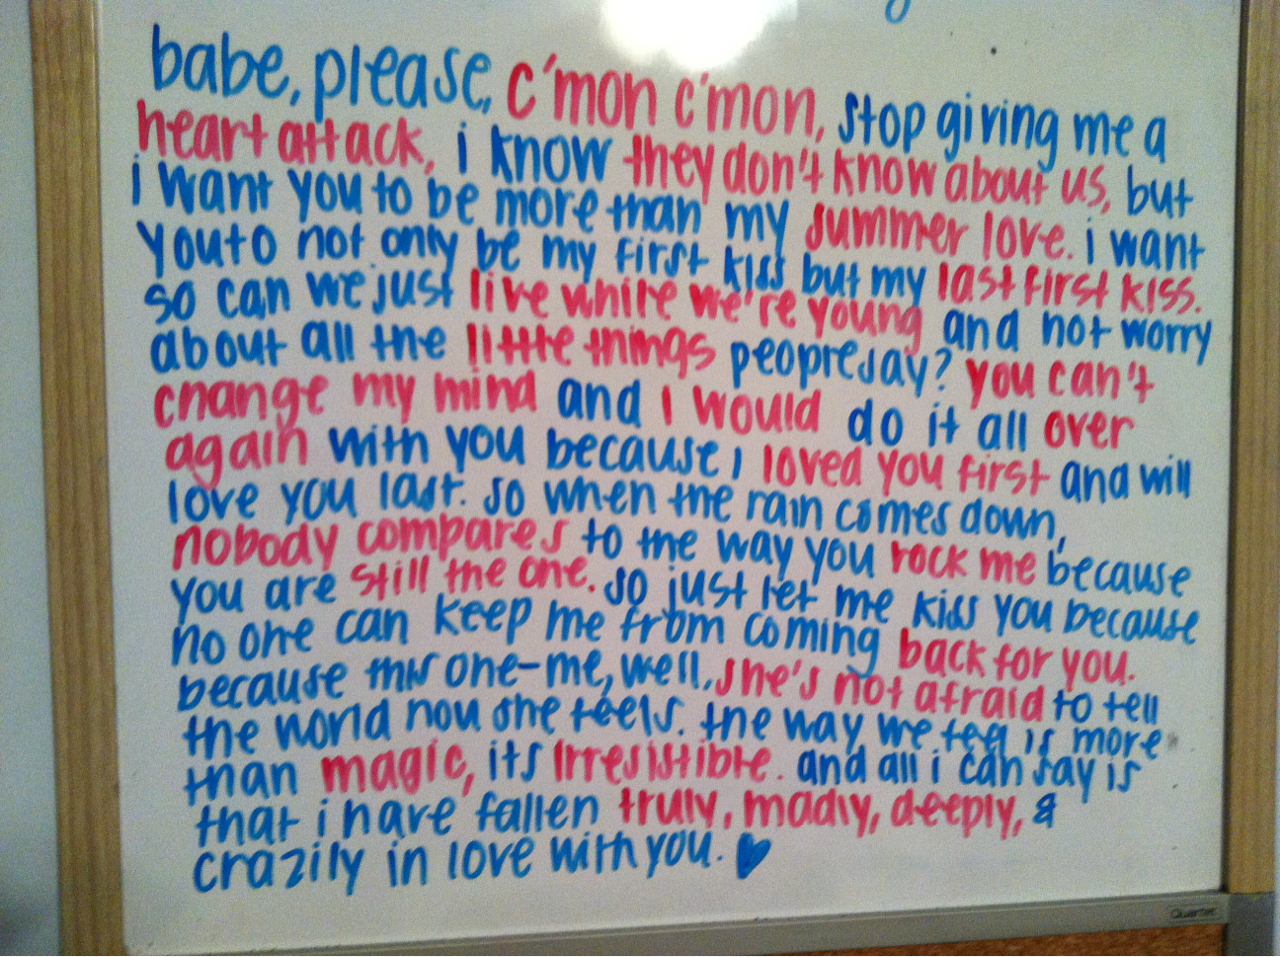 babe, please, c'mon c'mon, stop giving me a
heart attack, i know they don't know about us, but
i want you to be more than my summer love. i want
you to not only be my first kiss but my last first kiss.
so can we just live while we're young and not worry
about all the little things people say? you can't
change my mind and i would do it all over
again with you because i loved you first and will
love you last. so when the rain comes down,
nobody compares to the way you rock me because
you are still the one. so just let me kiss you because
no one can keep me from coming back for you.
because this one-me, well, she's not afraid to tell
the world how she feels. the way we feel is more
than magic, its irresistible. and all i can say is
that i have fallen truly, madly, deeply, &
crazily in love with you.
Quartet